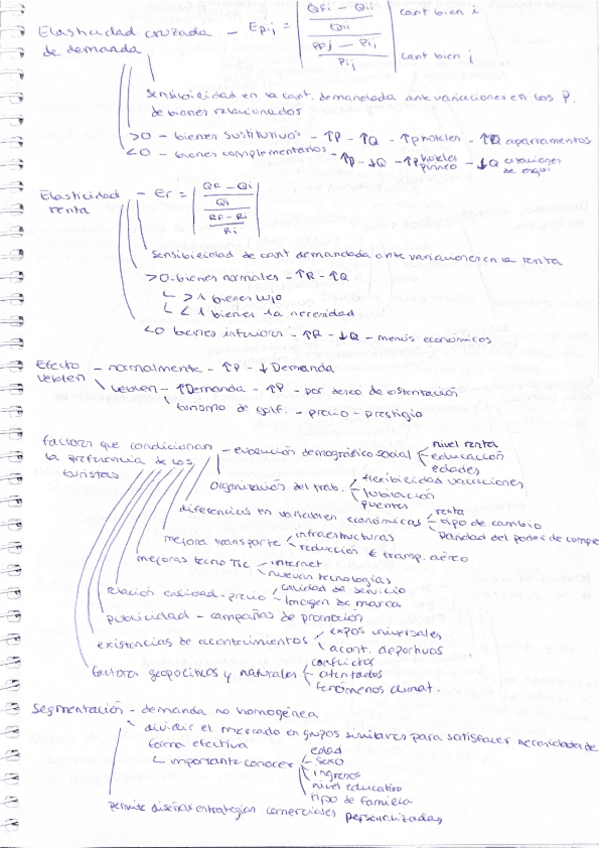 Elasticidad cruzada de demanda - Epi,j = | (Qfi - Qii / Qii) / (Pfj - Pij / Pij) | cant bien i
cant bien i
sensibilidad en la cant. demandada ante variaciones en los P.
de bienes relacionados
>0 - bienes sustitutivos - ↑P - ↑Q - ↑P hoteles - ↑Q apartamentos
<0 - bienes complementarios - ↑P - ↓Q - ↑P hoteles pirineo - ↓Q estaciones de esquí
Elasticidad renta - Er = | (QF - Qi / Qi) / (RF - Ri / Ri) |
sensibilidad de cant demandada ante variaciones en la renta
>0 - bienes normales - ↑R - ↑Q
> 1 bienes lujo
< 1 bienes 1a necesidad
<0 bienes inferiores - ↑R - ↓Q - menús económicos
Efecto Veblen - normalmente - ↑P - ↓ Demanda
Veblen - ↑Demanda - ↑P - por deseo de ostentación
turismo de golf. - precio - prestigio
Factores que condicionan la preferencia de los turistas - evolución demográfico social - nivel renta
educación
edades
organización del trab. - flexibilidad vacaciones
jubilación
puentes
diferencias en variables económicas - renta
tipo de cambio
paridad del poder de compra
mejora transporte - infraestructuras
reducción € transp. aéreo
mejoras tecno TIC - internet
nuevas tecnologías
relación calidad-precio - calidad de servicio
imagen de marca
publicidad - campañas de promoción
existencias de acontecimientos - expos universales
acont. deportivos
factores geopolíticos y naturales - conflictos
atentados
fenómenos climat.
Segmentación - demanda no homogénea
dividir el mercado en grupos similares para satisfacer necesidades de
forma efectiva
importante conocer - edad
sexo
ingresos
nivel educativo
tipo de familia
permite diseñar estrategias comerciales personalizadas